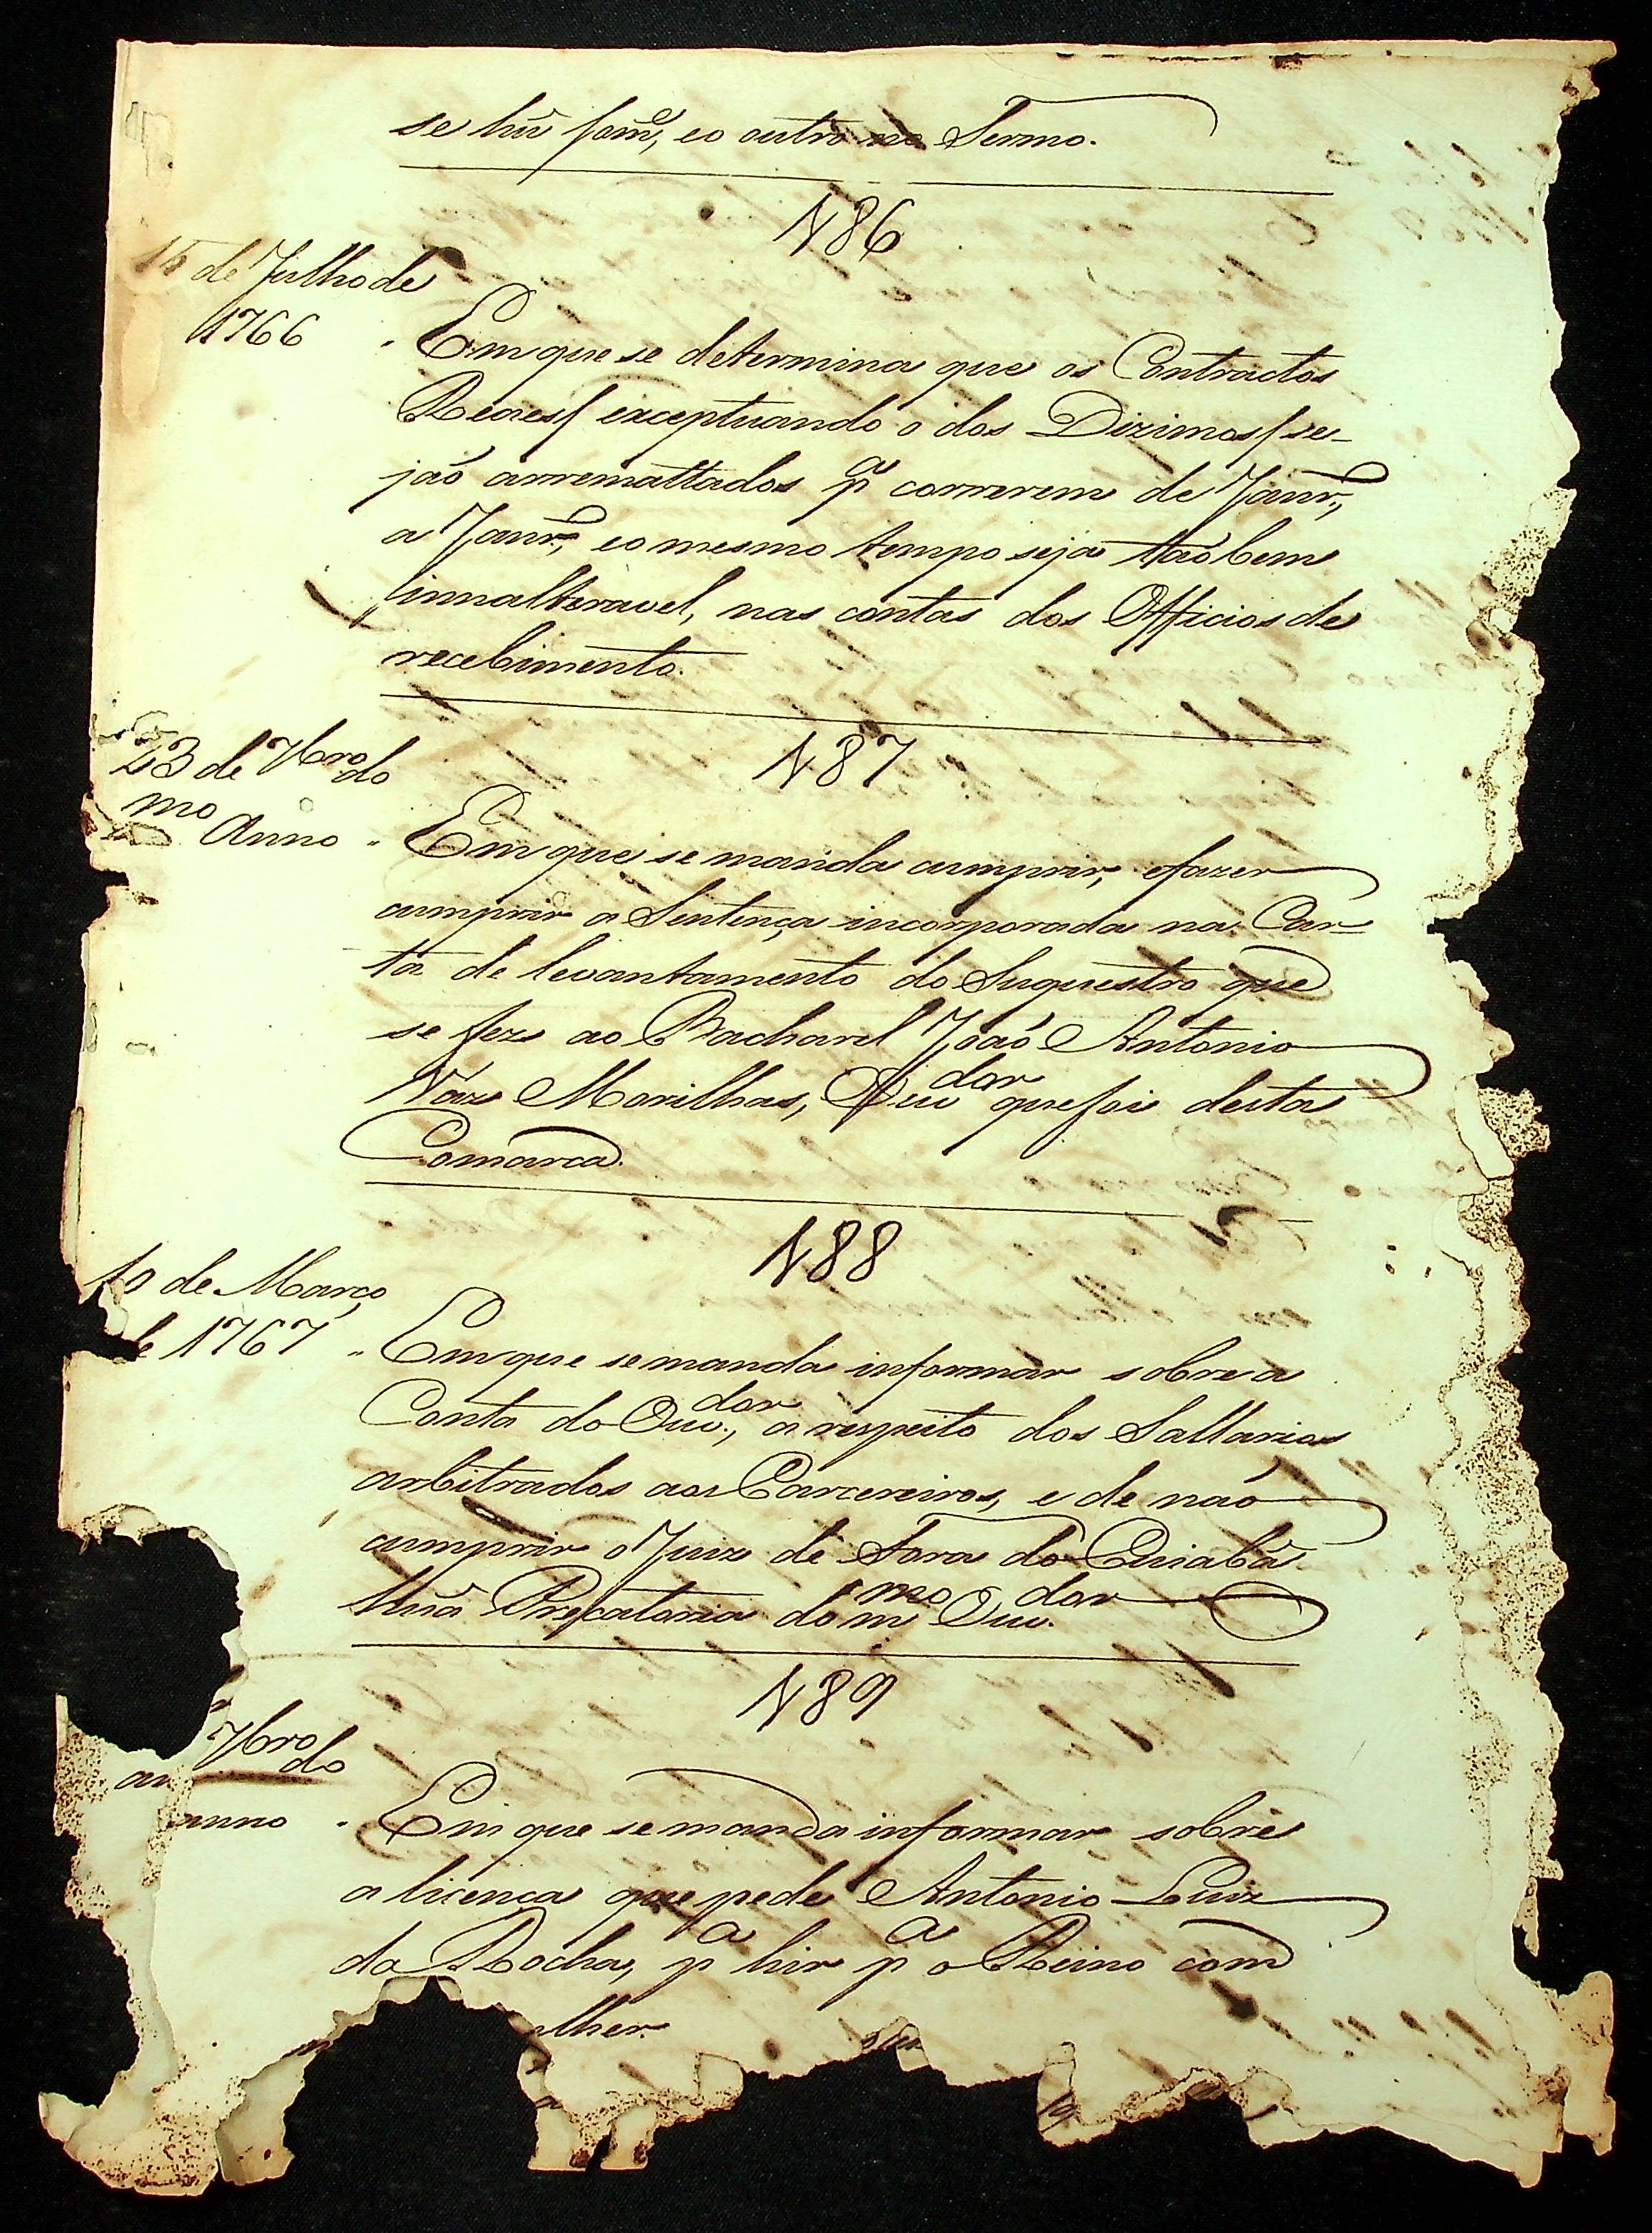 se hũ som.te, e o outro no Termo.
N 86
15 de Julho de
1766
" Em que se determina que os Contractos
Reaes/ exceptuando o dos Dizimos/ se-
jaõ arremattados p.a correrem de Janr.o,
a Janr.o, e o mesmo tempo seja taõbem
innalteravel, nas contas dos Officios de
recebimento.
N 87
23 de 7bro do
mo Anno
" Em que se manda cumprir, e fazer
cumprir a Sentença incorporada na Car-
ta de levantamento do Suquestro que
se fez ao Bacharel Joaõ Antonio
Vaz Morilhas, Ouv.dor que foi desta
Comarca.
N 88
10 de Março
de 1767
" Em que se manda informar sobre a
Conta do Ouv.dor, a respeito dos Sallarios
arbitrados aos Carcereiros, e de naõ
cumprir o Juiz de Fora do Cuiabá
hũa Precatoria do m.mo Ouv.dor
N 89
7bro do
anno
" Em que se manda informar sobre
a licença que pede Antonio Luiz
da Rocha, p.a hir p.a o Reino com
lher.